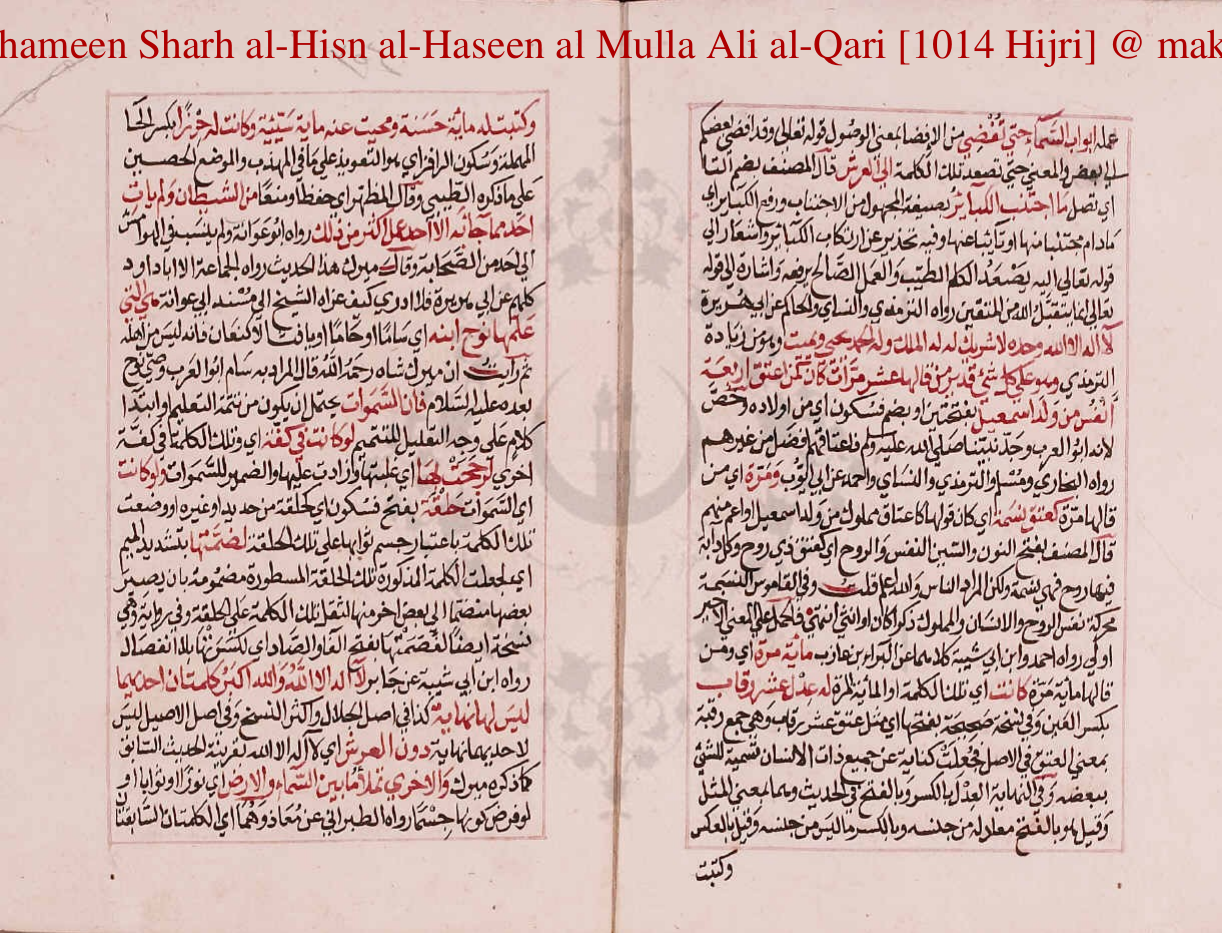 hameen Sharh al-Hisn al-Haseen al Mulla Ali al-Qari [1014 Hijri] @ mak
له ابواب السماء حتى تفضي من الافضا بمعنى الوصول قوله تعالى وقد افضى بعضكم
الى بعض والمعنى حتى تصعد تلك الكلمة الى العرش قال المصنف بضم التا
اي تصل ما اجتنب الكبائر بصيغة المجهول من الاجتناب ورفع الكبائر اي
مادام مجتنبا منها او تائبا عنها وفيه تحذير عن ارتكاب الكبائر واشعار الى
قوله تعالى اليه يصعد الكلم الطيب والعمل الصالح يرفعه واشارة الى قوله
تعالى انما يتقبل الله من المتقين رواه الترمذي والنساي والحاكم عن ابي هريرة
لا اله الا الله وحده لا شريك له له الملك وله الحمد يحيي ويميت وهو من زيادة
الترمذي وهو على كل شئ قدير من قالها عشر مرات كان كمن اعتق اربعة
انفس من ولد اسمعيل بفتحتين او بضم فسكون اي من اولاده وخص
لانه ابو العرب وجد نبينا صلى الله عليه وسلم فاعتاقهم افضل من غيرهم
رواه البخاري ومسلم والترمذي والنساي واحمد عن ابي ايوب ومرة اي من
قالها مرة كعتق نسمة اي كان قولها كاعتاق مملوك من ولد اسمعيل او اعم منهم
قال المصنف بفتح النون والسين النفس والروح اي كعتق ذي روح وكل دابة
فيها روح فهي نسمة ولكن المراد الناس والله اعلم قلت وفي القاموس النسمة
محركة نفس الروح والانسان والمملوك ذكرا كان او انثى انتهى فالحمل على المعنى الاخير
اولى رواه احمد وابن ابي شيبة كلاهما عن البراء بن عازب مائة مرة اي ومن
قالها مائة مرة كانت اي تلك الكلمة او المائة المرة له عدل عشر رقاب
بكسر العين وفي نسخة صحيحة بفتحها اي مثل عتق عشر رقاب وهي جمع رقبة
بمعنى العنق في الاصل فجعلت كناية عن جميع ذات الانسان تسمية للشئ
ببعضه وفي النهاية العدل بالكسر وبالفتح في الحديث وهما بمعنى المثل
وقيل هو بالفتح ما عادله من جنسه وبالكسر ما ليس من جنسه وقيل بالعكس
وكتبت
وكتبت له مائة حسنة ومحيت عنه مائة سيئة وكانت له حرزا بكسر الحا
المهملة وسكون الرا فزاي هو التعويذ على ما في المهذب والموضع الحصين
على ما ذكره الطيبي وقال المظهر اي حفظا ومنعا من الشيطان ولم يات
احد مما جاء به الا احد عمل اكثر من ذلك رواه ابو عوانة ولم ينسب في الهوامش
الى احد من الصحابة وقال ميرك هذا الحديث رواه الجماعة الا ابا داود
كلهم عن ابي هريرة فلا ادري كيف عزاه الشيخ الى مسند ابي عوانة هي التي
علمها نوح ابنه اي ساما او حاما او يافث لا كنعان فانه ليس من اهله
ثم رايت ان ميرك شاه رحمه الله قال المراد به سام ابو العرب وصي نوح
بعده عليه السلام فان السموات يحتمل ان يكون من تتمة التعليم او ابتدا
كلام على وجه التعليل للتتميم لو كانت في كفة اي وتلك الكلمة في كفة
اخرى لرجحت بها اي غلبتها وزادت عليها والضمير للسموات ولو كانت
اي السموات حلقة بفتح فسكون اي كحلقة من حديد او غيره او وضعت
تلك الكلمة باعتبار جسم ثوابها على تلك الحلقة لضمتها بتشديد الميم
اي لجعلت الكلمة المذكورة تلك الحلقة المسطورة مضمومة بان يصير
بعضها منضما الى بعض اخر منها لثقل تلك الكلمة على الحلقة وفي رواية وهي
نسخة ايضا لفصمتها بفتح الفا والصاد اي لكسرتها بلا انفصال
رواه ابن ابي شيبة عن جابر لا اله الا الله والله اكبر كلمتان احديهما
ليس لها نهاية كذا في اصل الجلال واكثر النسخ وفي اصل الاصيل ليس
لاحديهما نهاية دون العرش اي لا اله الا الله بقرينة الحديث السابق
كما ذكره ميرك والاخرى تملأ ما بين السماء والارض اي نورا او ثوابا او
لو فرض كونها جسما رواه الطبراني عن معاذ وهما اي الكلمتان السابقتان